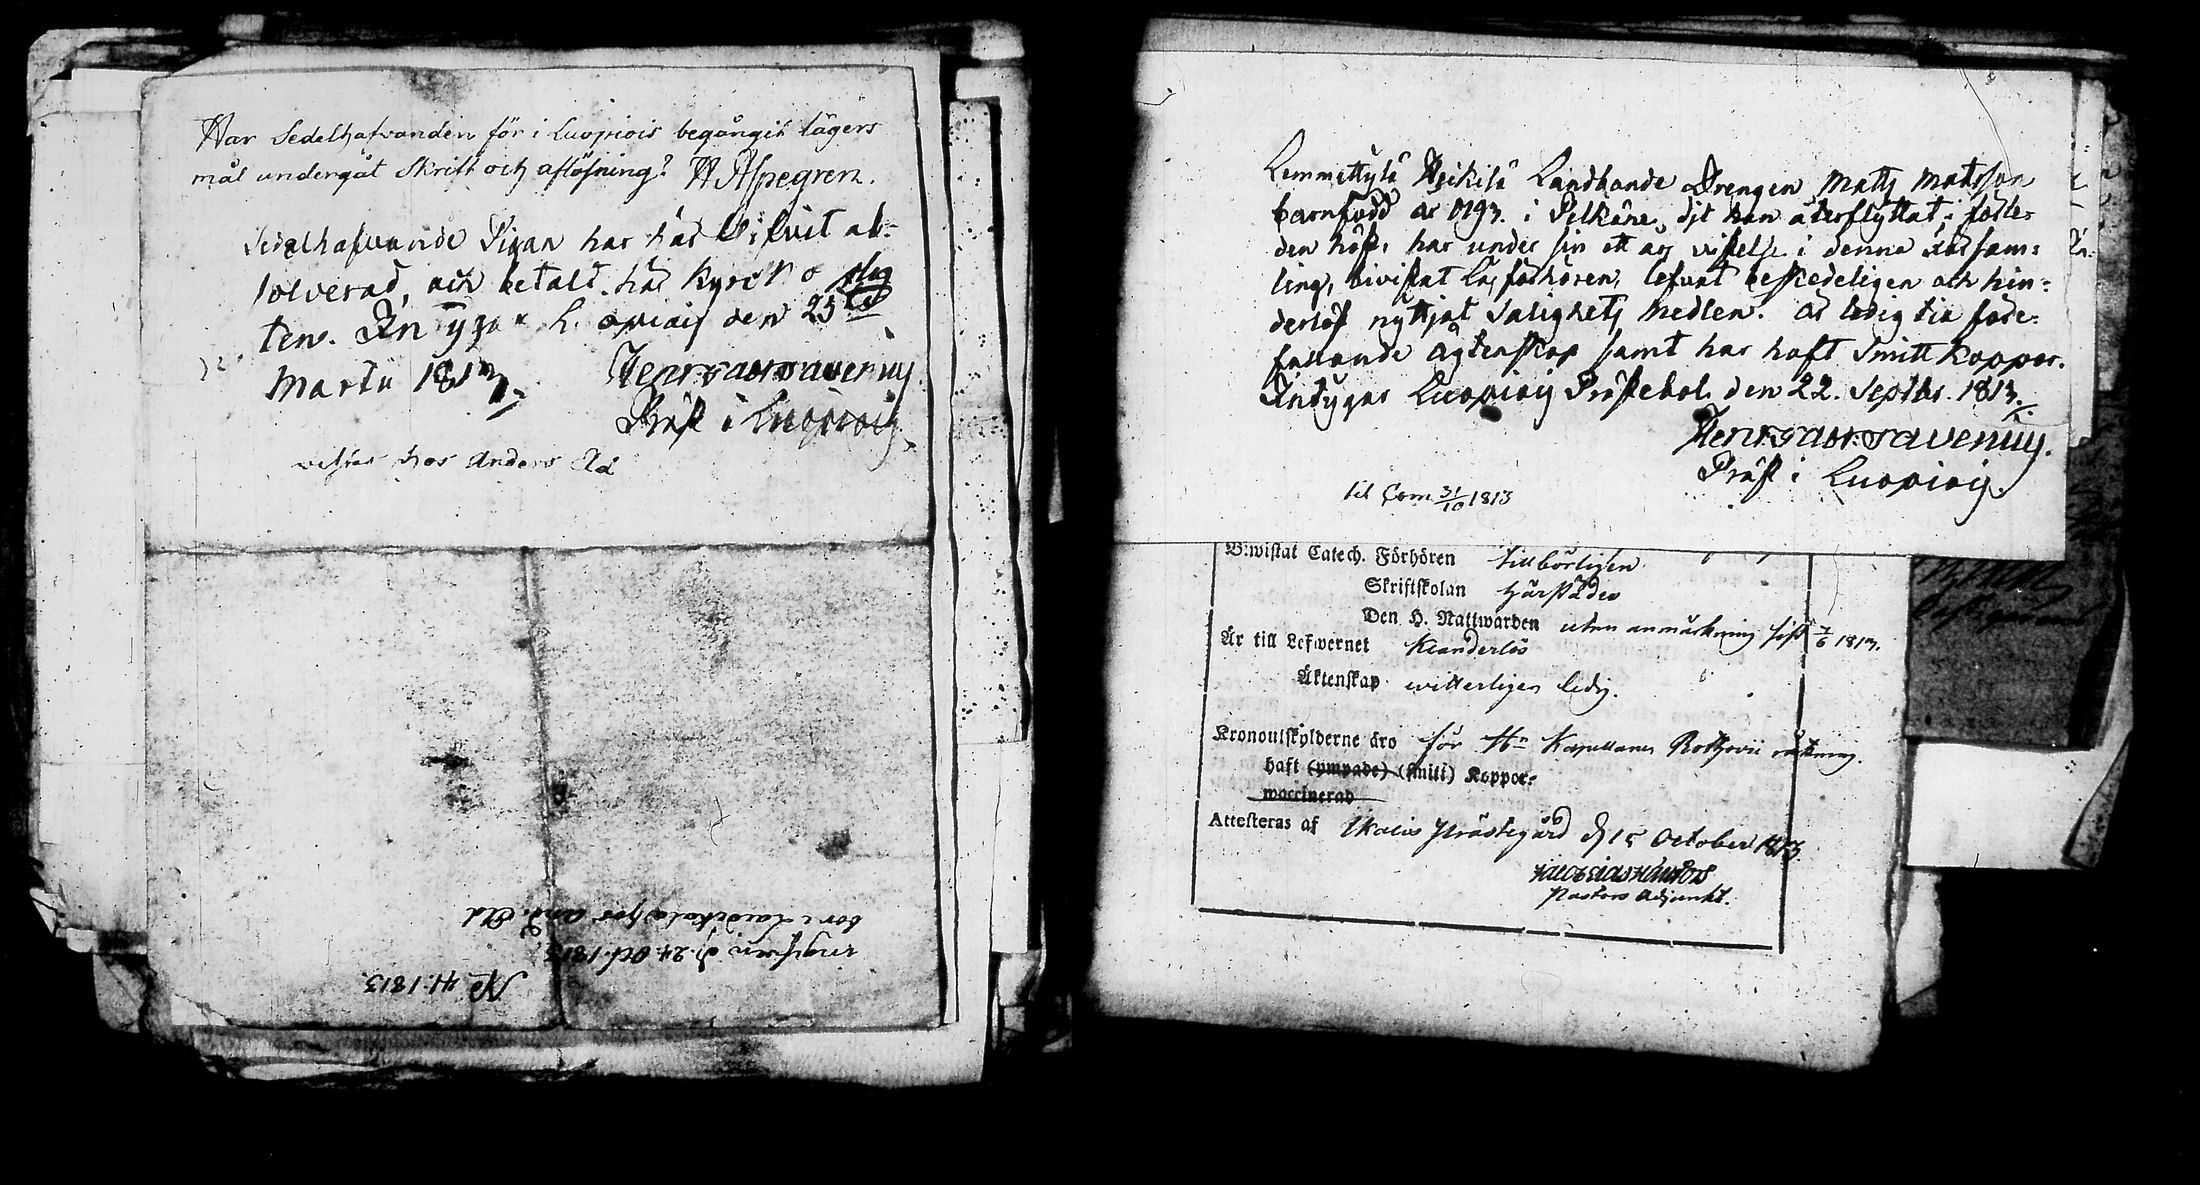 Har Sedelhafvanden för i Luopiois begångit lägers
mål undergåt Skrift och aflösning? H Alpegren.
Sedelhafvande Pigan har här blifvit ab-
solverad, och betalt här Kyrko plig
ten. Intygar Luopiois den 25
Martii 1813.
Präst i Luopiois.
vistas hos Anders
No 41. 1813.
d. 24 Oct. 1813.
bor i hos And.
Lemmettylä Heikilä Landbonde Drengen Matts Matsson
barnfödd år 1793. i Pelkäne, dit han återflyttat i förle-
den höst, har under sin ett års vistelse i denna Församl:
ling, bivistat Läsförhören, lefvat beskedeligen och hin:
derlöst nyttjat Salighets medlen. Är ledig till före-
fallande ägtenskap samt har haft Smitt Koppor.
Intygar Luopiois Prästebol den 22. Septbr. 1813.
Präst i Luopiois.
til Com 31/10 1813
Biwistat Catech. Förhören tillbörligen
Skriftskolan härstädes
Den H. Nattwarden utan anmärkning sist 7/6 1813.
Är till Lefwernet klanderlös
Äktenskap witterligen ledig.
Kronoutskylderne äro för Hr Kapellanen räkning.
haft (ympade) (smitt) Koppor.
waccinerad
Attesteras af Ikalis Prästegård d 15 October 1813.
Pastors Adjunkt.